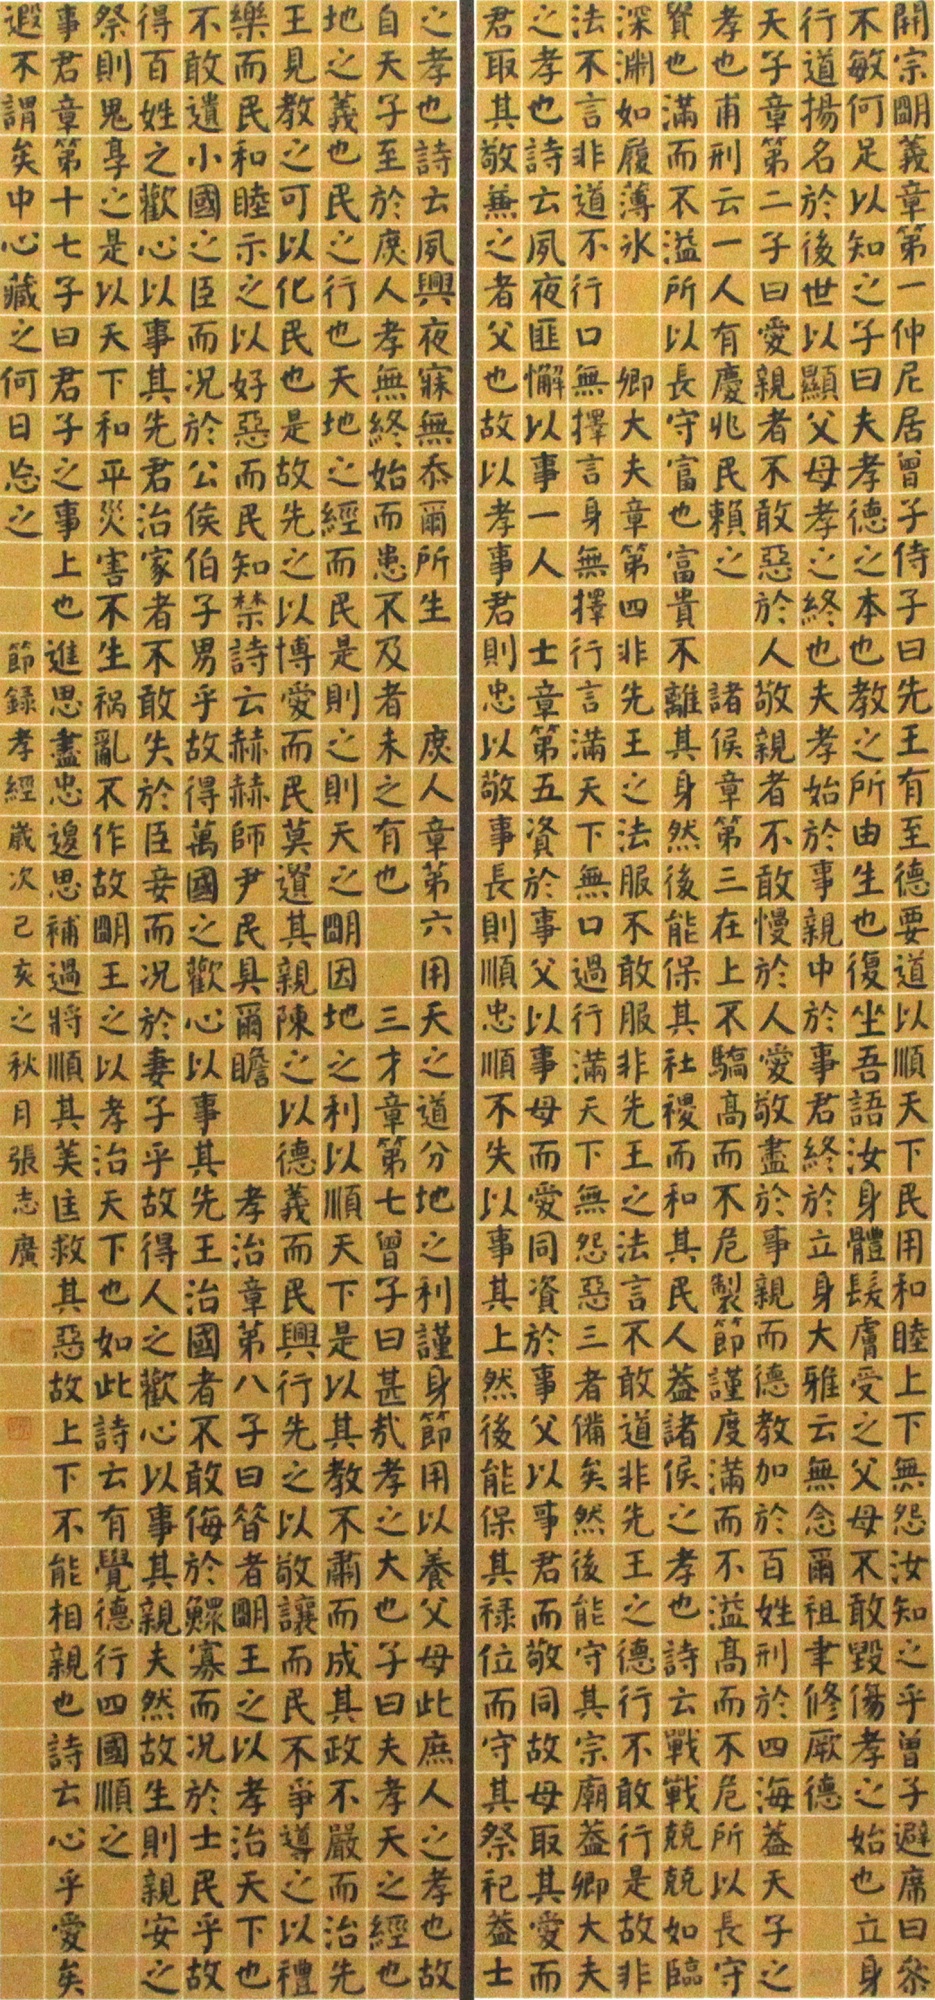 開宗明義章第一仲尼居曾子侍子曰先王有至德要道以順天下民用和睦上下無怨汝知之乎曾子避席曰參
不敏何足以知之子曰夫孝德之本也教之所由生也復坐吾語汝身體髮膚受之父母不敢毀傷孝之始也立身
行道揚名於後世以顯父母孝之終也夫孝始於事親中於事君終於立身大雅云無念爾祖聿修厥德
天子章第二子曰愛親者不敢惡於人敬親者不敢慢於人愛敬盡於事親而德教加於百姓刑於四海蓋天子之
孝也甫刑云一人有慶兆民賴之 諸侯章第三在上不驕高而不危製節謹度滿而不溢高而不危所以長守
貴也滿而不溢所以長守富也富貴不離其身然後能保其社稷而和其民人蓋諸侯之孝也詩云戰戰兢兢如臨
深淵如履薄冰 卿大夫章第四非先王之法服不敢服非先王之法言不敢道非先王之德行不敢行是故非
法不言非道不行口無擇言身無擇行言滿天下無口過行滿天下無怨惡三者備矣然後能守其宗廟蓋卿大夫
之孝也詩云夙夜匪懈以事一人 士章第五資於事父以事母而愛同資於事父以事君而敬同故母取其愛而
君取其敬兼之者父也故以孝事君則忠以敬事長則順忠順不失以事其上然後能保其禄位而守其祭祀蓋士
之孝也詩云夙興夜寐無忝爾所生 庶人章第六用天之道分地之利謹身節用以養父母此庶人之孝也故
自天子至於庶人孝無終始而患不及者未之有也 三才章第七曾子曰甚哉孝之大也子曰夫孝天之經也
地之義也民之行也天地之經而民是則之則天之明因地之利以順天下是以其教不肅而成其政不嚴而治先
王見教之可以化民也是故先之以博愛而民莫遺其親陳之以德義而民興行先之以敬讓而民不爭導之以禮
樂而民和睦示之以好惡而民知禁詩云赫赫師尹民具爾瞻 孝治章第八子曰昔者明王之以孝治天下也
不敢遺小國之臣而况於公侯伯子男乎故得萬國之歡心以事其先王治國者不敢侮於鰥寡而况於士民乎故
得百姓之歡心以事其先君治家者不敢失於臣妾而况於妻子乎故得人之歡心以事其親夫然故生則親安之
祭則鬼享之是以天下和平災害不生祸亂不作故明王之以孝治天下也如此詩云有覺德行四國順之
事君章第十七子曰君子之事上也進思盡忠退思補過將順其美匡救其惡故上下不能相親也詩云心乎愛矣
遐不謂矣中心藏之何日忘之 節録孝經歲次己亥之秋月張志廣